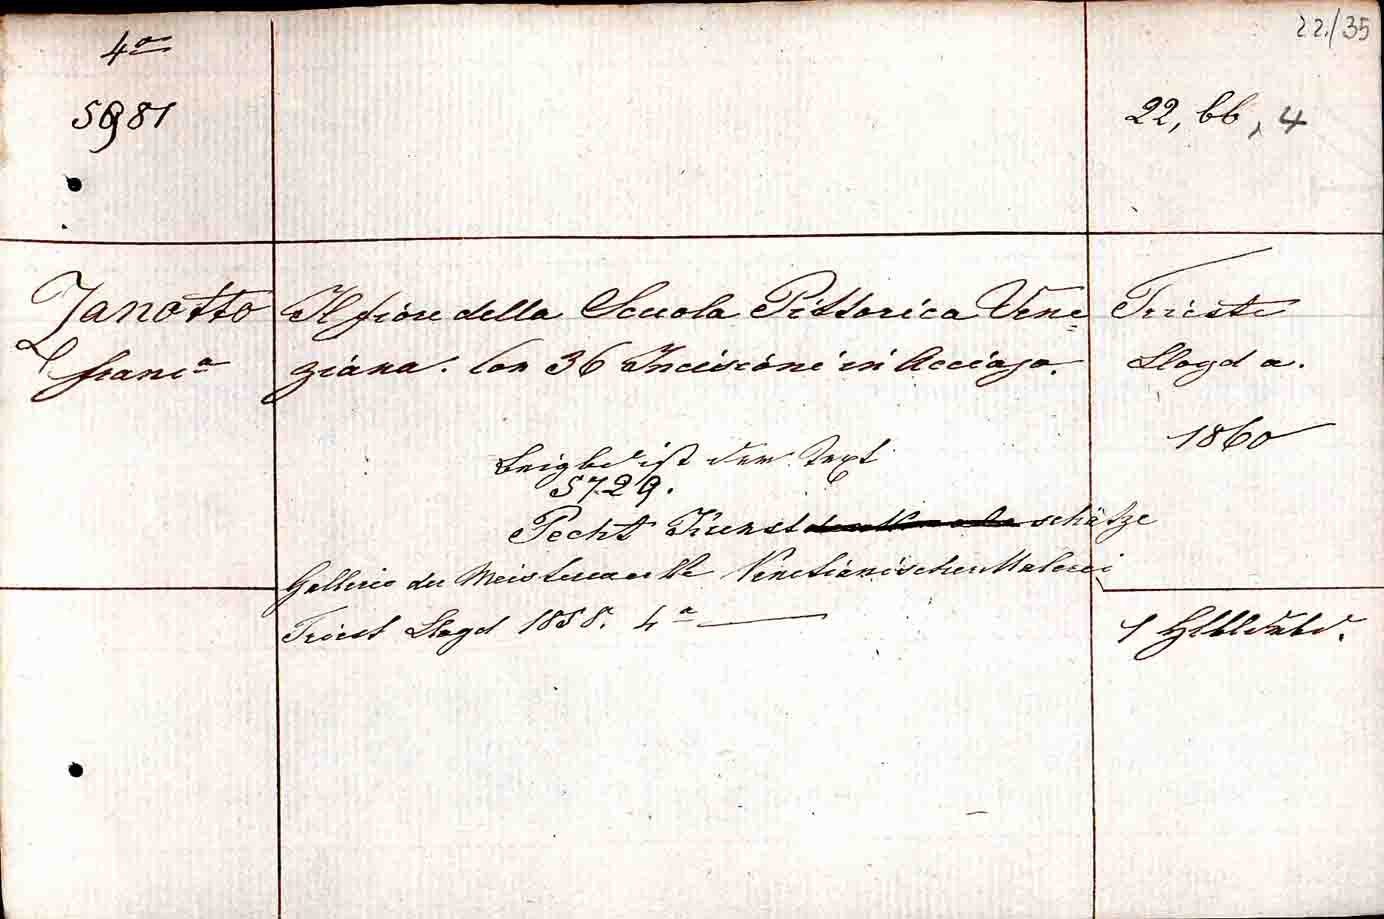 22./35
4°
5981
22, bb, 4
Zanotto
Il fiore della Scuola Pittorica Vene=
Trieste
franc°
ziana. Con 36 Incisioni in Acciajo.
Lloyd a.
1860
ist der Text
5729.
Pecht Kunst schätze
Gallerie der Meisterwerke Venetianischer Malerei
Triest Lloyd 1858. 4°
1 Hlbldrbd.